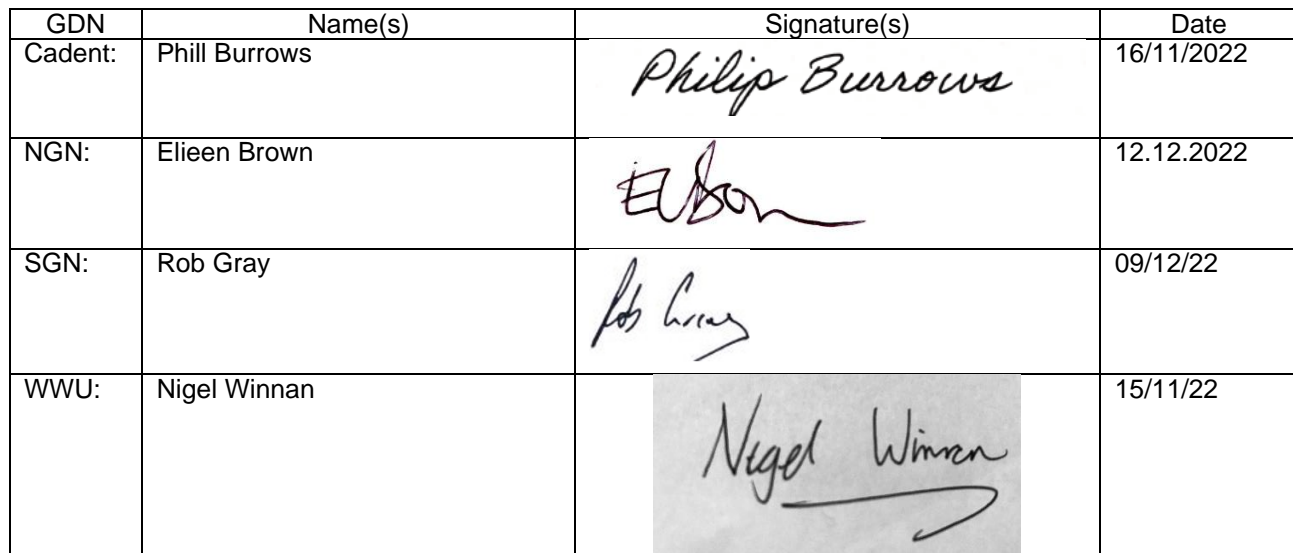 GDN Name(s) Signature(s) Date
Cadent: Phill Burrows Philip Burrows 16/11/2022
NGN: Elieen Brown 12.12.2022
SGN: Rob Gray Rob Gray 09/12/22
WWU: Nigel Winnan Nigel Winnan 15/11/22